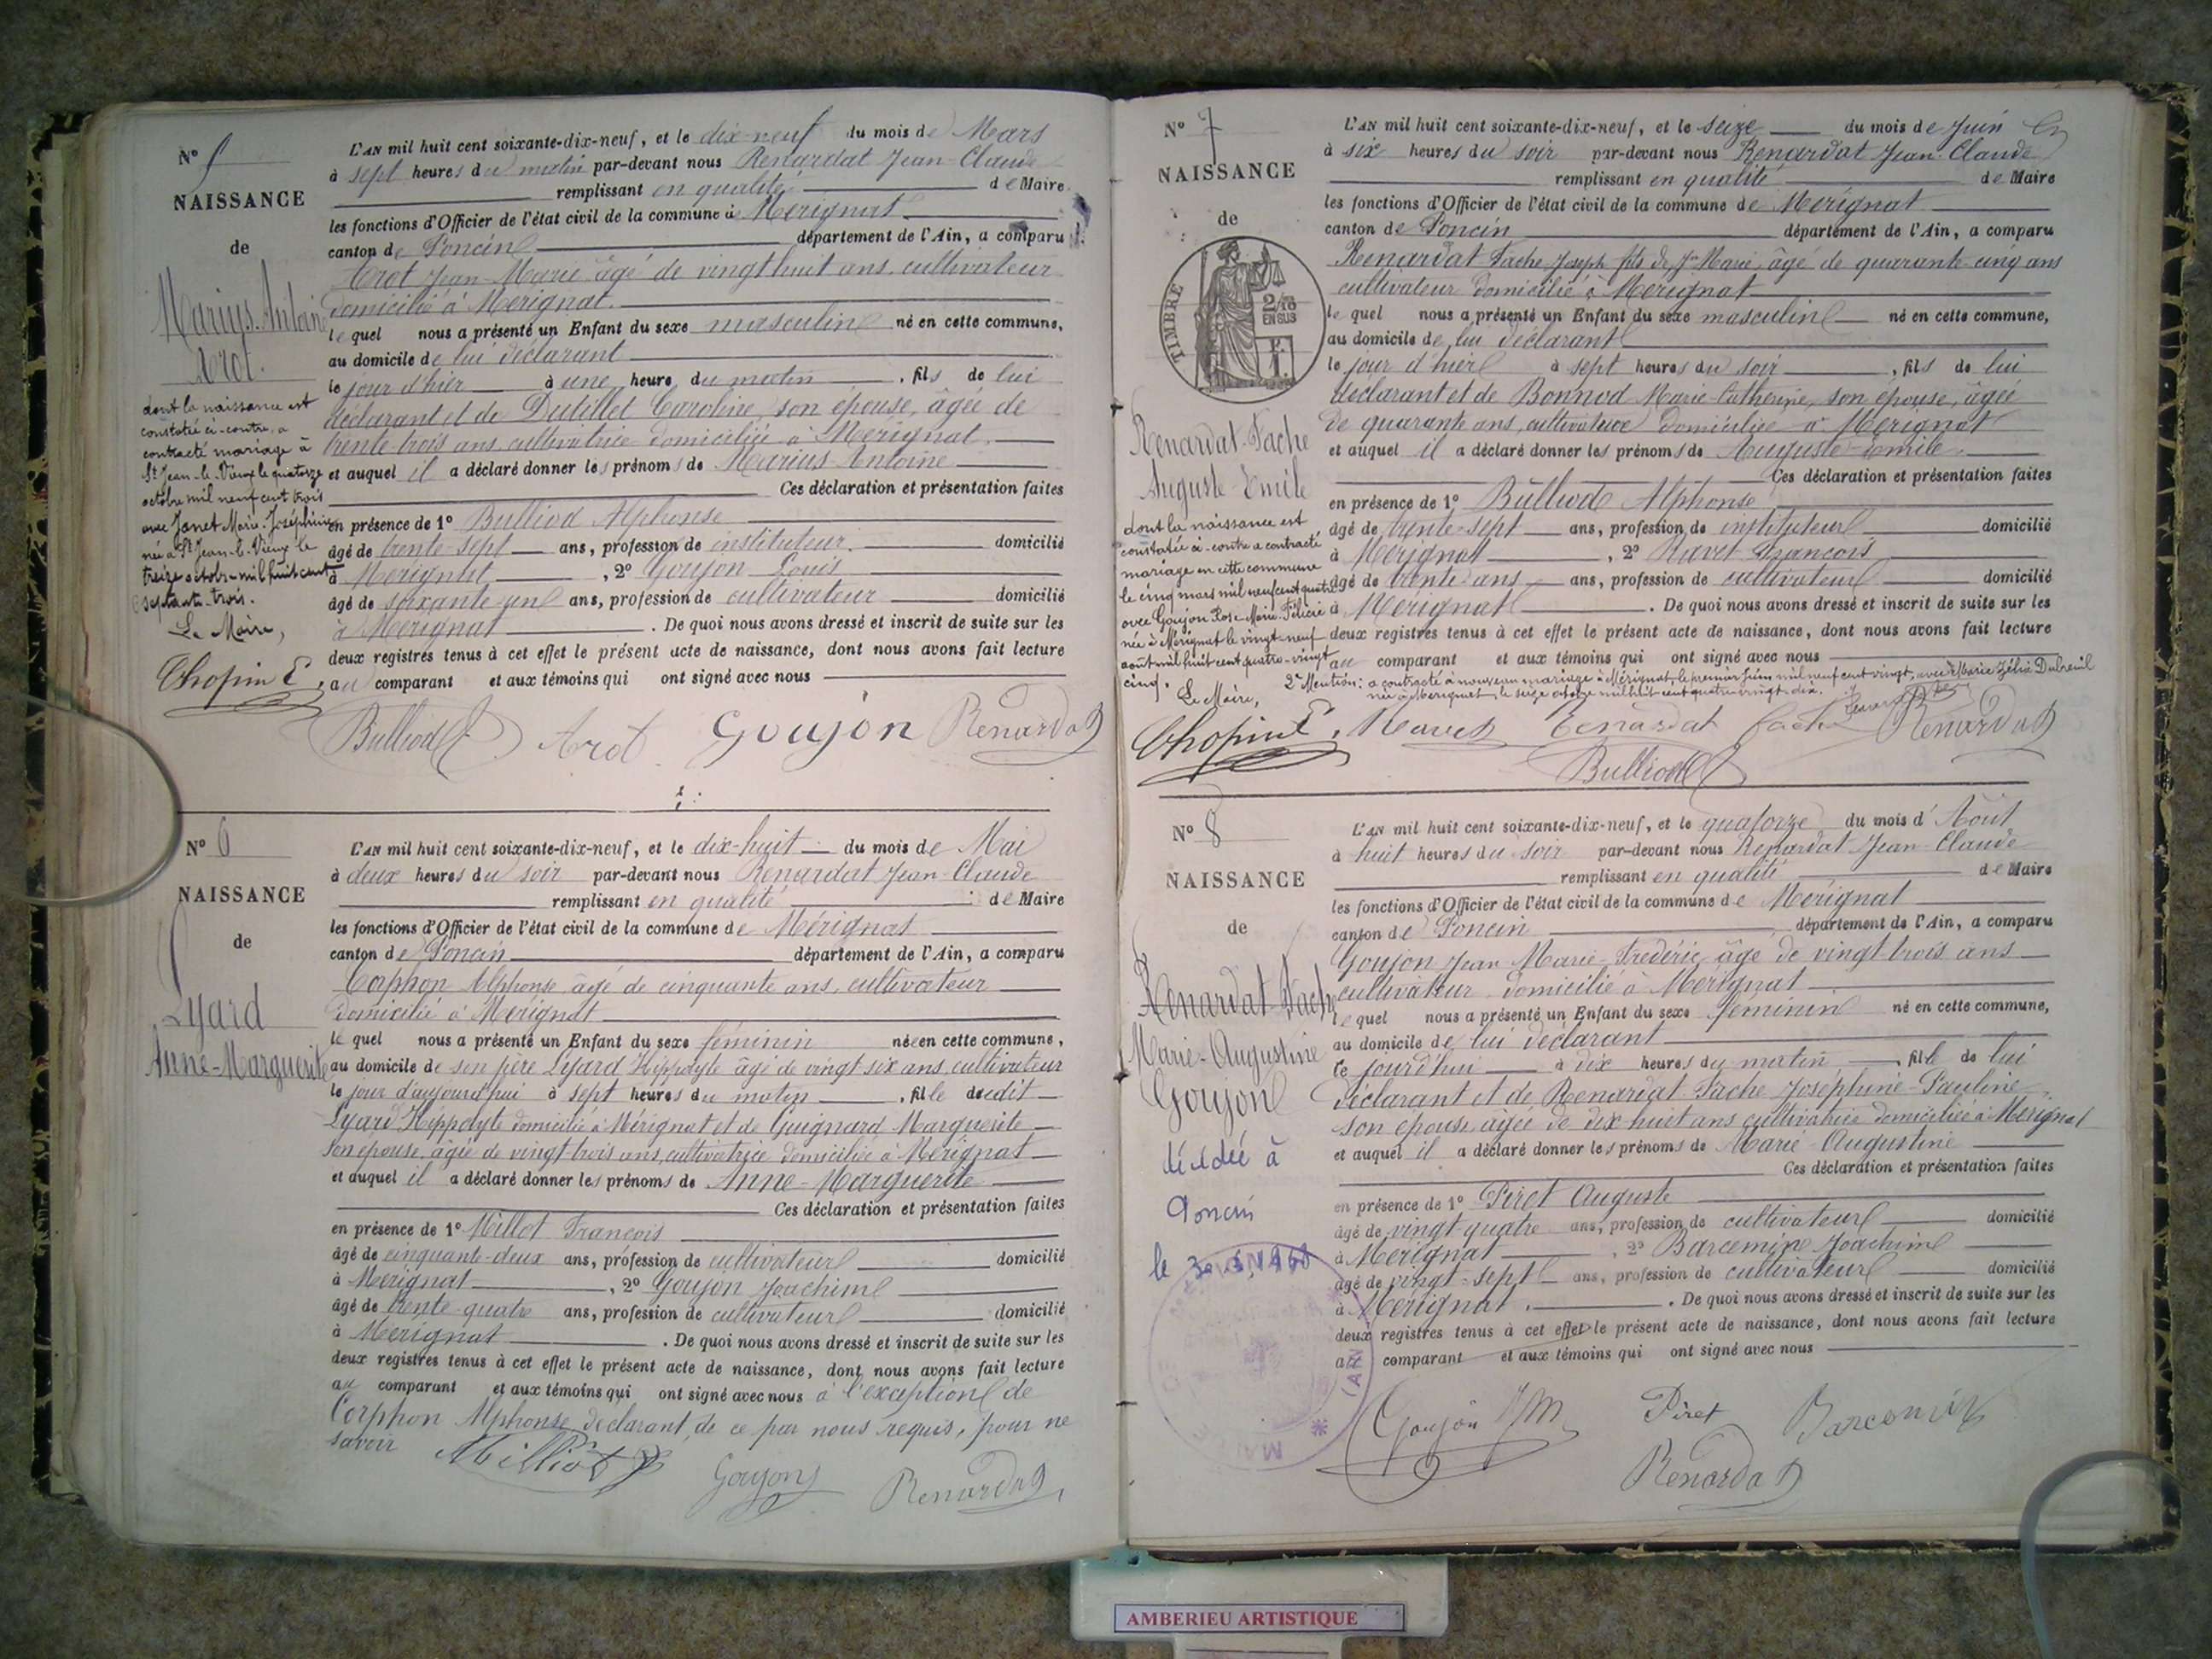 N° 5
NAISSANCE
de
Marius-Antoine
Arot.
dont la naissance est
constatée ci-contre, a
contracté mariage à
St Jean-le-Vieux le quatorze
octobre mil neuf cent trois
avec Janet Marie-Joséphine
née à St Jean-le-Vieux le
treize octobre mil huit cent
septante-trois.
Le Maire,
Chopin E.
L'AN mil huit cent soixante-dix-neuf, et le dix-neuf du mois de Mars
à sept heures du matin par-devant nous Renardat Jean-Claude
remplissant en qualité de Maire
les fonctions d'Officier de l'état civil de la commune de Merignat
canton de Poncin département de l'Ain, a comparu
Arot Jean-Marie âgé de vingt huit ans, cultivateur
domicilié à Merignat.
lequel nous a présenté un Enfant du sexe masculin né en cette commune,
au domicile de lui déclarant
le jour d'hier à une heure du matin, fils de lui
déclarant et de Dutillet Caroline, son épouse, âgée de
trente trois ans cultivatrice domiciliée à Merignat.
et auquel il a déclaré donner les prénoms de Marius Antoine
Ces déclaration et présentation faites
en présence de 1° Bulliod Alphonse
âgé de trente-sept ans, profession de instituteur. domicilié
à Merignat, 2° Goujon Louis
âgé de soixante un ans, profession de cultivateur domicilié
à Merignat. De quoi nous avons dressé et inscrit de suite sur les
deux registres tenus à cet effet le présent acte de naissance, dont nous avons fait lecture
au comparant et aux témoins qui ont signé avec nous
Bulliod Arot Goujon Renardat
N° 6
NAISSANCE
de
Lyard
Anne-Marguerite
L'AN mil huit cent soixante-dix-neuf, et le dix-huit du mois de Mai
à deux heures du soir par-devant nous Renardat Jean-Claude
remplissant en qualité de Maire
les fonctions d'Officier de l'état civil de la commune de Mérignat
canton de Poncin département de l'Ain, a comparu
Corphon Alphonse, âgé de cinquante ans, cultivateur
domicilié à Merignat
lequel nous a présenté un Enfant du sexe féminin née en cette commune,
au domicile de son père Lyard Hippolyte âgé de vingt six ans, cultivateur
le jour d'aujourd'hui à sept heures du matin, fille dudit
Lyard Hippolyte domicilié à Mérignat et de Guignard Marguerite
son épouse, âgée de vingt-trois ans, cultivatrice domiciliée à Merignat
et auquel il a déclaré donner les prénoms de Anne-Marguerite
Ces déclaration et présentation faites
en présence de 1° Millot François
âgé de cinquante-deux ans, profession de cultivateur domicilié
à Merignat, 2° Goujon Joachim
âgé de trente-quatre ans, profession de cultivateur domicilié
à Merignat. De quoi nous avons dressé et inscrit de suite sur les
deux registres tenus à cet effet le présent acte de naissance, dont nous avons fait lecture
au comparant et aux témoins qui ont signé avec nous à l'exception de
Corphon Alphonse, déclarant, de ce par nous requis, pour ne
savoir
Milliot Goujon Renardat
N° 7
NAISSANCE
de
TIMBRE
2/10
EN SUS
Renardat-Fache
Auguste-Emile
dont la naissance est
constatée ci-contre a contracté
mariage en cette commune
le cinq mars mil neuf cent quatre
avec Goujon Rose-Marie-Félicie
née à Mérignat le vingt-neuf
août mil huit cent quatre-vingt
cinq.
Le Maire,
Chopin E.
L'AN mil huit cent soixante-dix-neuf, et le seize du mois de Juin
à six heures du soir par-devant nous Renardat Jean-Claude
remplissant en qualité de Maire
les fonctions d'Officier de l'état civil de la commune de Mérignat
canton de Poncin département de l'Ain, a comparu
Renardat Fache Joseph fils de Jn Marie, âgé de quarante-cinq ans
cultivateur domicilié à Merignat
lequel nous a présenté un Enfant du sexe masculin né en cette commune,
au domicile de lui déclarant
le jour d'hier à sept heures du soir, fils de lui
déclarant et de Bonnod Marie-Catherine, son épouse, âgée
de quarante ans, cultivatrice domiciliée à Mérignat
et auquel il a déclaré donner les prénoms de Auguste-Emile.
Ces déclaration et présentation faites
en présence de 1° Bulliod Alphonse
âgé de trente-sept ans, profession de instituteur domicilié
à Merignat, 2° Ravet François
âgé de trente ans, profession de cultivateur domicilié
à Merignat. De quoi nous avons dressé et inscrit de suite sur les
deux registres tenus à cet effet le présent acte de naissance, dont nous avons fait lecture
au comparant et aux témoins qui ont signé avec nous
2e Mention: a contracté à nouveau mariage à Mérignat, le premier juin mil neuf cent vingt, avec Marie Zélie Dubreuil
née à Merignat, le seize octobre mil huit cent quatre vingt dix.
Renardat Fache Renardat
Bulliod
N° 8
NAISSANCE
de
Renardat Fache
Marie-Augustine
Goujon
décédée à
Poncin
L'AN mil huit cent soixante-dix-neuf, et le quatorze du mois d'Août
à huit heures du soir par-devant nous Renardat Jean-Claude
remplissant en qualité de Maire
les fonctions d'Officier de l'état civil de la commune de Mérignat
canton de Poncin département de l'Ain, a comparu
Goujon Jean Marie-Frédéric, âgé de vingt-trois ans
cultivateur domicilié à Mérignat
lequel nous a présenté un Enfant du sexe féminin né en cette commune,
au domicile de lui déclarant
ce jourd'hui à dix heures du matin, fille de lui
déclarant et de Renardat-Fache Joséphine-Pauline
son épouse, âgée de dix huit ans cultivatrice domiciliée à Mérignat
et auquel il a déclaré donner les prénoms de Marie-Augustine
Ces déclaration et présentation faites
en présence de 1° Piret Auguste
âgé de vingt quatre ans, profession de cultivateur domicilié
à Merignat, 2° Barcemin Joachim
âgé de vingt-sept ans, profession de cultivateur domicilié
à Mérignat. De quoi nous avons dressé et inscrit de suite sur les
deux registres tenus à cet effet le présent acte de naissance, dont nous avons fait lecture
au comparant et aux témoins qui ont signé avec nous
Goujon JM Piret Barcemin
Renardat
AMBERIEU ARTISTIQUE